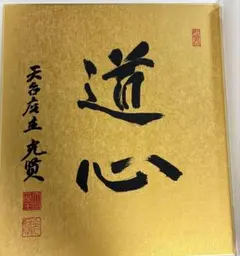 道心
天台座主 光賢